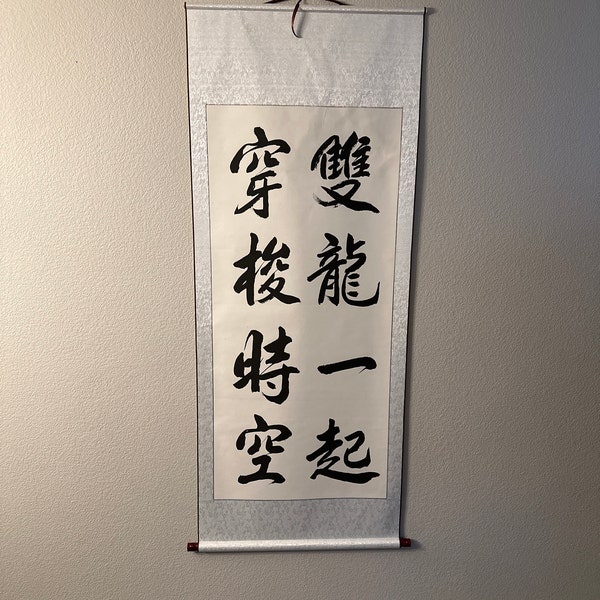 雙龍一起
穿梭時空